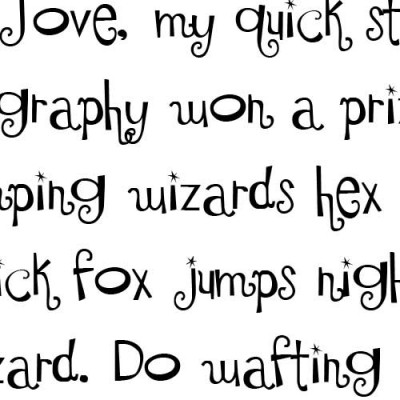 Jove, my quick st
graphy won a pri
ping wizards hex
ick fox jumps nigh
zard. Do wafting